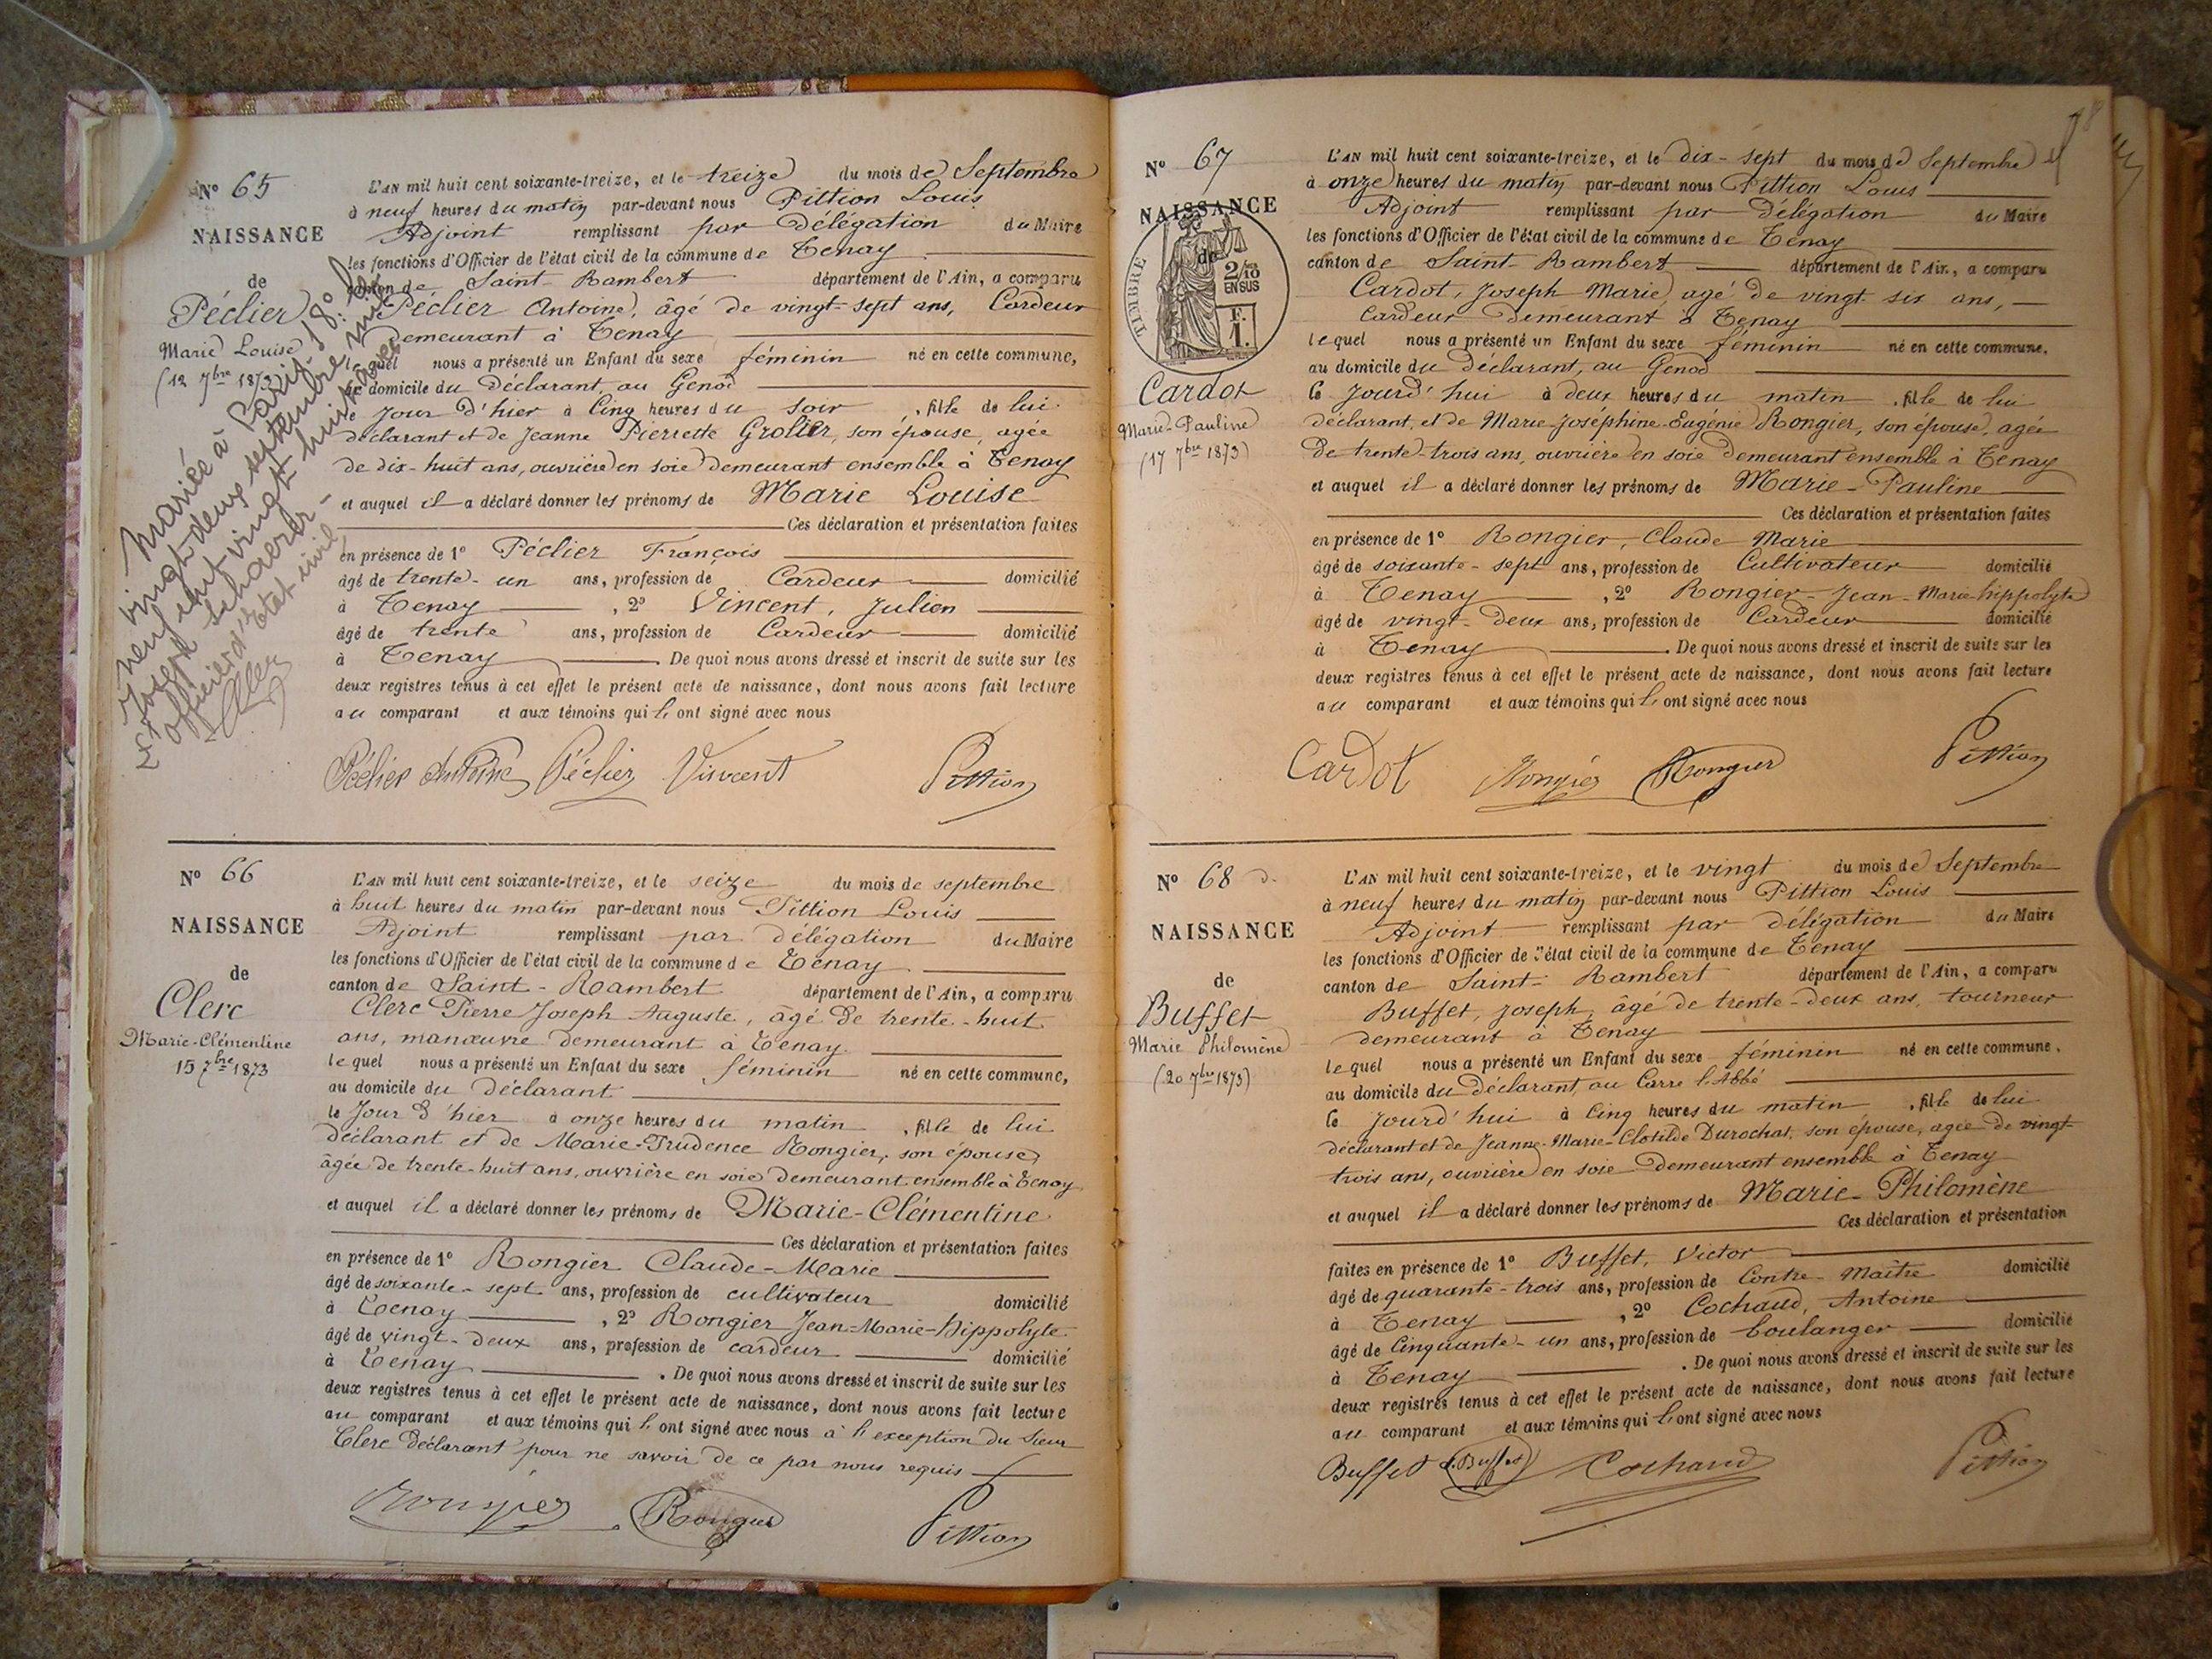 N° 65
NAISSANCE
de
Péclier
Marie Louise
(12 7bre 1873)
Mariée à Paris 18e le
vingt-deux septembre mil
neuf cent vingt huit avec
Joseph
officier d'Etat civil
L'AN mil huit cent soixante-treize, et le treize du mois de Septembre
à neuf heures du matin par-devant nous Pittion Louis
Adjoint remplissant par délégation du Maire
les fonctions d'Officier de l'état civil de la commune de Tenay
canton de Saint-Rambert département de l'Ain, a comparu
Péclier Antoine, âgé de vingt-sept ans, Cardeur
demeurant à Tenay
lequel nous a présenté un Enfant du sexe féminin né en cette commune,
au domicile du déclarant, au Genod
le jour d'hier à cinq heures du soir, fille de lui
déclarant et de Jeanne Pierrette Grolier, son épouse, agée
de dix-huit ans, ouvrière en soie demeurant ensemble à Tenay
et auquel il a déclaré donner les prénoms de Marie Louise
Ces déclaration et présentation faites
en présence de 1° Péclier François
âgé de trente-un ans, profession de Cardeur domicilié
à Tenay, 2° Vincent, Julien
âgé de trente ans, profession de Cardeur domicilié
à Tenay. De quoi nous avons dressé et inscrit de suite sur les
deux registres tenus à cet effet le présent acte de naissance, dont nous avons fait lecture
au comparant et aux témoins qui l'ont signé avec nous
Péclier Antoine Péclier Vincent Pittion
N° 66
NAISSANCE
de
Clerc
Marie-Clémentine
15 7bre 1873
L'AN mil huit cent soixante-treize, et le seize du mois de septembre
à huit heures du matin par-devant nous Pittion Louis
Adjoint remplissant par délégation du Maire
les fonctions d'Officier de l'état civil de la commune de Tenay
canton de Saint-Rambert département de l'Ain, a comparu
Clerc Pierre Joseph Auguste, âgé de trente-huit
ans, manœuvre demeurant à Tenay
lequel nous a présenté un Enfant du sexe féminin né en cette commune,
au domicile du déclarant
le jour d'hier à onze heures du matin, fille de lui
déclarant et de Marie-Prudence Rongier, son épouse,
âgée de trente-huit ans, ouvrière en soie demeurant ensemble à Tenay
et auquel il a déclaré donner les prénoms de Marie-Clémentine
Ces déclaration et présentation faites
en présence de 1° Rongier Claude-Marie
âgé de soixante-sept ans, profession de cultivateur domicilié
à Tenay, 2° Rongier Jean-Marie-hippolyte
âgé de vingt-deux ans, profession de cardeur domicilié
à Tenay. De quoi nous avons dressé et inscrit de suite sur les
deux registres tenus à cet effet le présent acte de naissance, dont nous avons fait lecture
au comparant et aux témoins qui l'ont signé avec nous à l'exception du Sieur
Clerc déclarant pour ne savoir de ce par nous requis
Rongier Rongier Pittion
18
N° 67
NAISSANCE
de
TIMBRE
2/10
EN SUS
F.
1.
Cardot
Marie-Pauline
(17 7bre 1873)
L'AN mil huit cent soixante-treize, et le dix-sept du mois de Septembre
à onze heures du matin par-devant nous Pittion Louis
Adjoint remplissant par délégation du Maire
les fonctions d'Officier de l'état civil de la commune de Tenay
canton de Saint-Rambert département de l'Ain, a comparu
Cardot, Joseph Marie, agé de vingt six ans,
Cardeur demeurant à Tenay
lequel nous a présenté un Enfant du sexe féminin né en cette commune,
au domicile du déclarant, au Genod
le jourd'hui à deux heures du matin, fille de lui
déclarant, et de Marie-Joséphine-Eugénie Rongier, son épouse, agée
de trente-trois ans, ouvrière en soie demeurant ensemble à Tenay
et auquel il a déclaré donner les prénoms de Marie-Pauline
Ces déclaration et présentation faites
en présence de 1° Rongier, Claude Marie
âgé de soixante-sept ans, profession de Cultivateur domicilié
à Tenay, 2° Rongier-Jean-Marie-hippolyte
âgé de vingt-deux ans, profession de Cardeur domicilié
à Tenay. De quoi nous avons dressé et inscrit de suite sur les
deux registres tenus à cet effet le présent acte de naissance, dont nous avons fait lecture
au comparant et aux témoins qui l'ont signé avec nous
Cardot Rongier Rongier Pittion
N° 68
NAISSANCE
de
Buffet
Marie Philomène
(20 7bre 1873)
L'AN mil huit cent soixante-treize, et le vingt du mois de Septembre
à neuf heures du matin par-devant nous Pittion Louis
Adjoint remplissant par délégation du Maire
les fonctions d'Officier de l'état civil de la commune de Tenay
canton de Saint-Rambert département de l'Ain, a comparu
Buffet, Joseph, âgé de trente-deux ans, tourneur
demeurant à Tenay
lequel nous a présenté un Enfant du sexe féminin né en cette commune,
au domicile du déclarant, au Carre l'Abbé
le jourd'hui à cinq heures du matin, fille de lui
déclarant et de Jeanne-Marie-Clotilde Durochat, son épouse, agée de vingt
trois ans, ouvrière en soie demeurant ensemble à Tenay
et auquel il a déclaré donner les prénoms de Marie-Philomène
Ces déclaration et présentation
faites en présence de 1° Buffet, Victor
âgé de quarante-trois ans, profession de Contre-Maître domicilié
à Tenay, 2° Cochaud, Antoine
âgé de cinquante-un ans, profession de boulanger domicilié
à Tenay. De quoi nous avons dressé et inscrit de suite sur les
deux registres tenus à cet effet le présent acte de naissance, dont nous avons fait lecture
au comparant et aux témoins qui l'ont signé avec nous
Buffet V. Buffet Cochaud Pittion